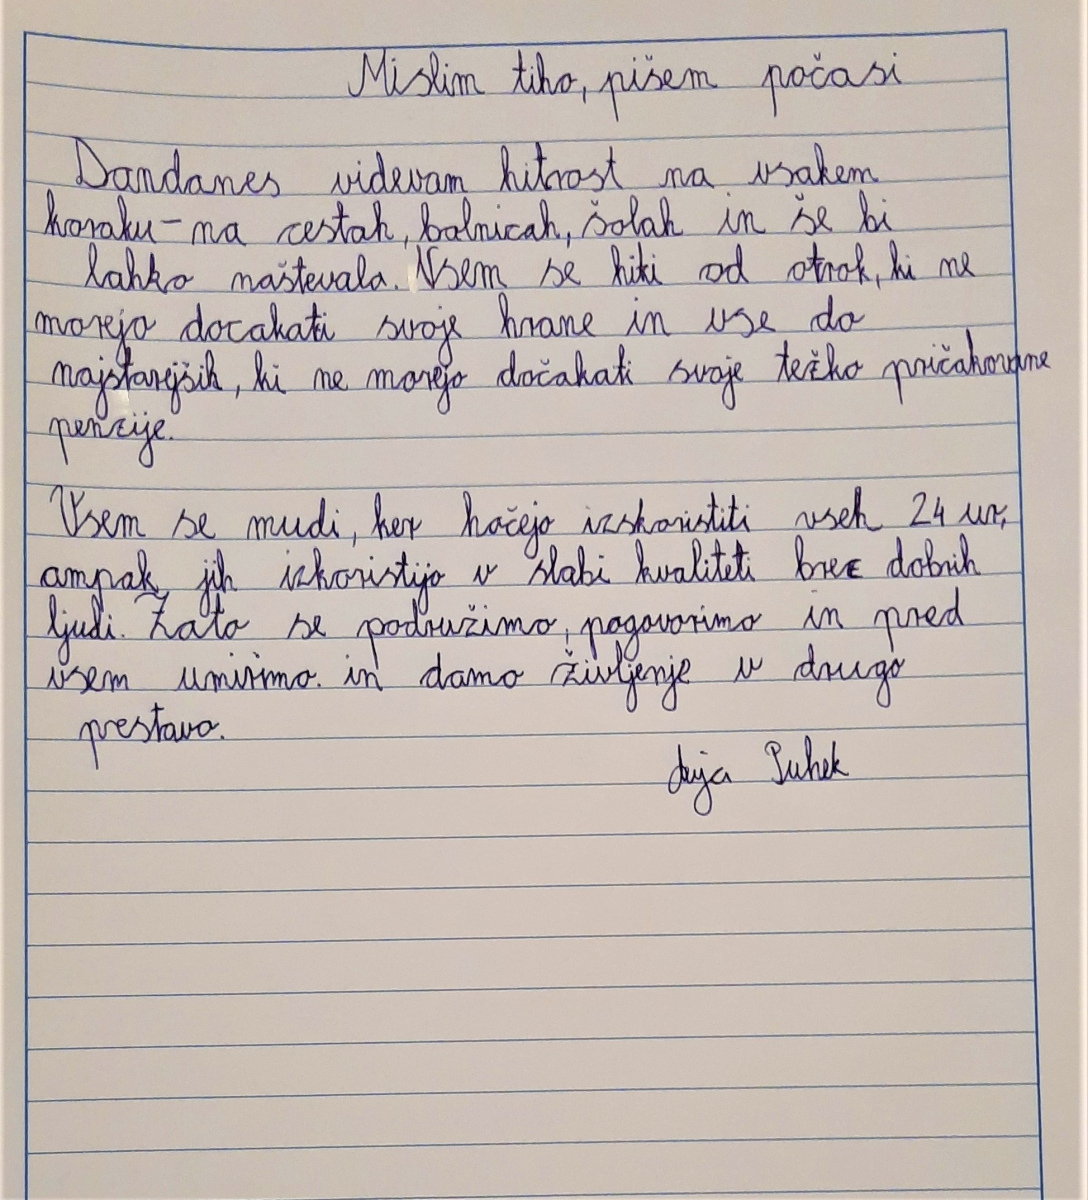 Mislim tiho, pišem počasi
Dandanes videvam hitrost na vsakem
koraku - na cestah, bolnicah, šolah in še bi
lahko naštevala. Vsem se hiti od otrok, ki ne
morejo docakati svoje hrane in vse do
najstarejših, ki ne morejo dočakati svoje težko pričakovane
penzije.
Vsem se mudi, ker hočejo izskoristiti vseh 24 ur,
ampak jih izkoristijo v slabi kvaliteti brez dobrih
ljudi. Zato se podružimo, pogovorimo in pred
vsem umirimo. in damo življenje v drugo
prestavo.
Puhek